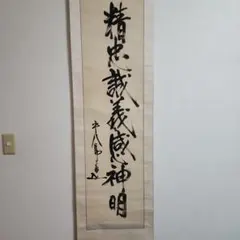 精忠誠義感神明